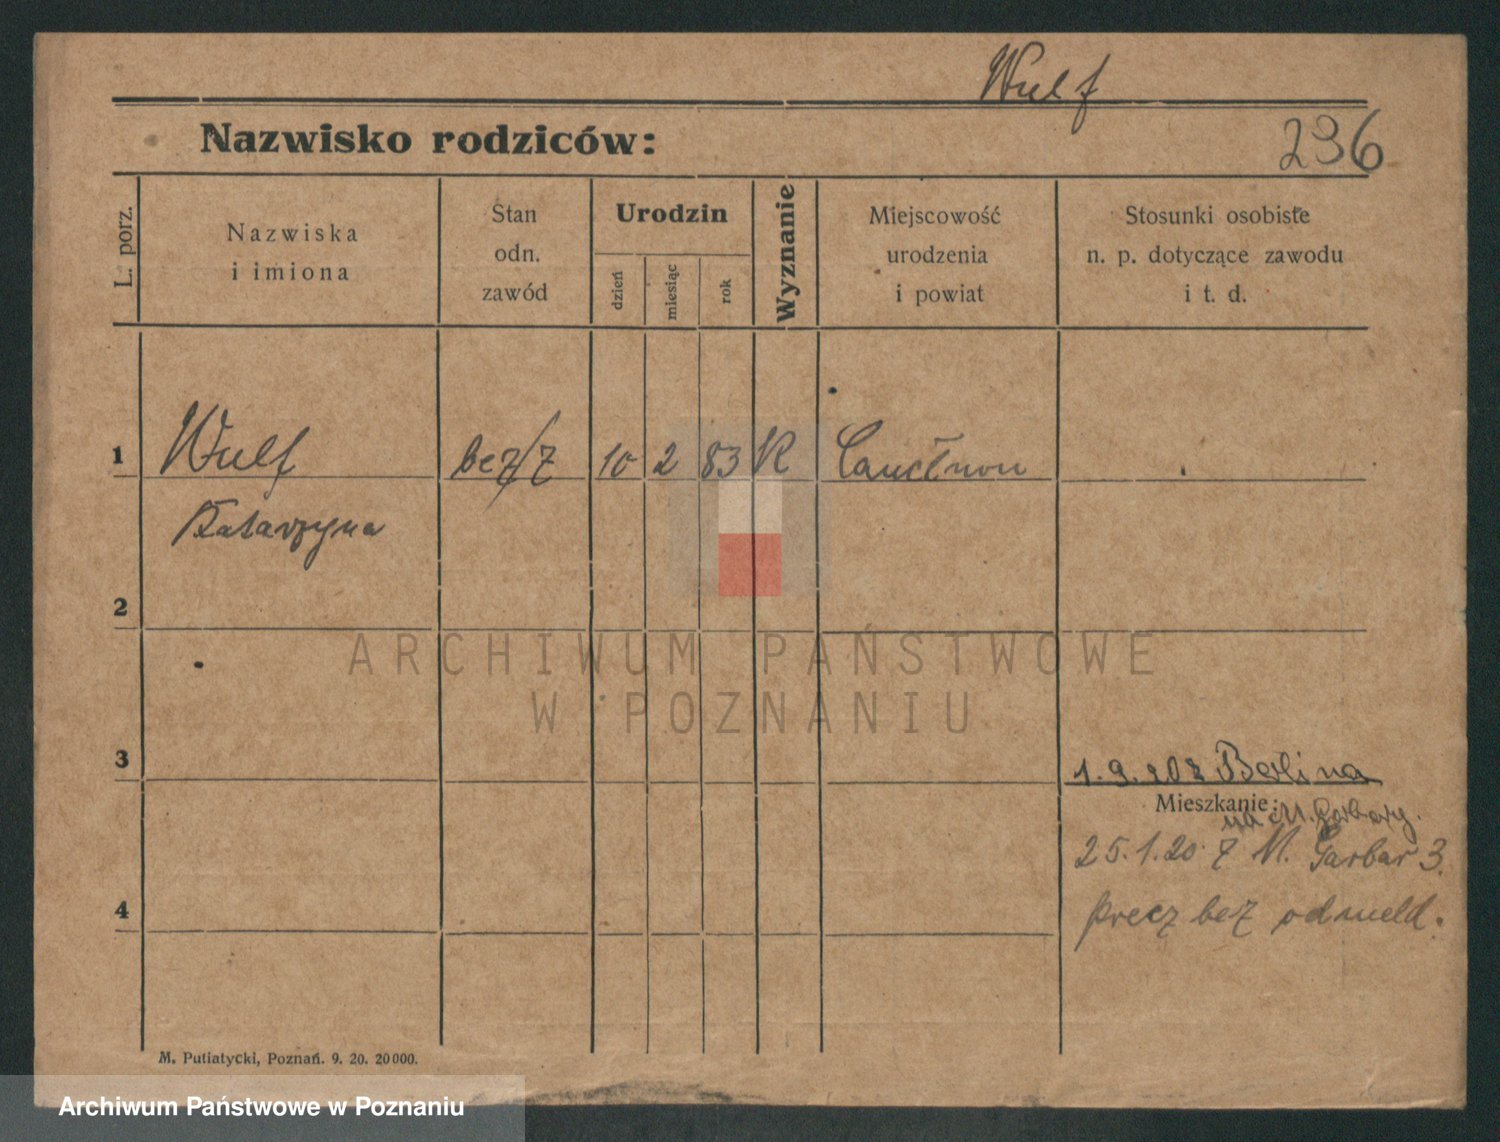 Wulf
Nazwisko rodziców:
236
L. porz.
Nazwiska
i imiona
Stan
odn.
zawód
Urodzin
dzień
miesiąc
rok
Wyznanie
Miejscowość
urodzenia
i powiat
Stosunki osobiste
n. p. dotyczące zawodu
i t. d.
1
Wulf
bez/z
10
2
83
K
Katarzyna
2
ARCHIWUM PAŃSTWOWE
W POZNANIU
3
1.9.20 z Berlina
Mieszkanie:
na M. Garbary.
25.1.20 z M. Garbar 3.
precz bez odmeld.
4
M. Putiatycki, Poznań. 9. 20. 20000.
Archiwum Państwowe w Poznaniu